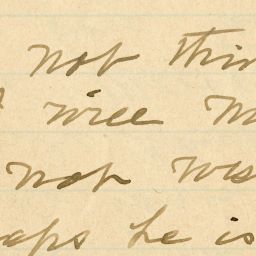 not thin
will
not wis
aps he is